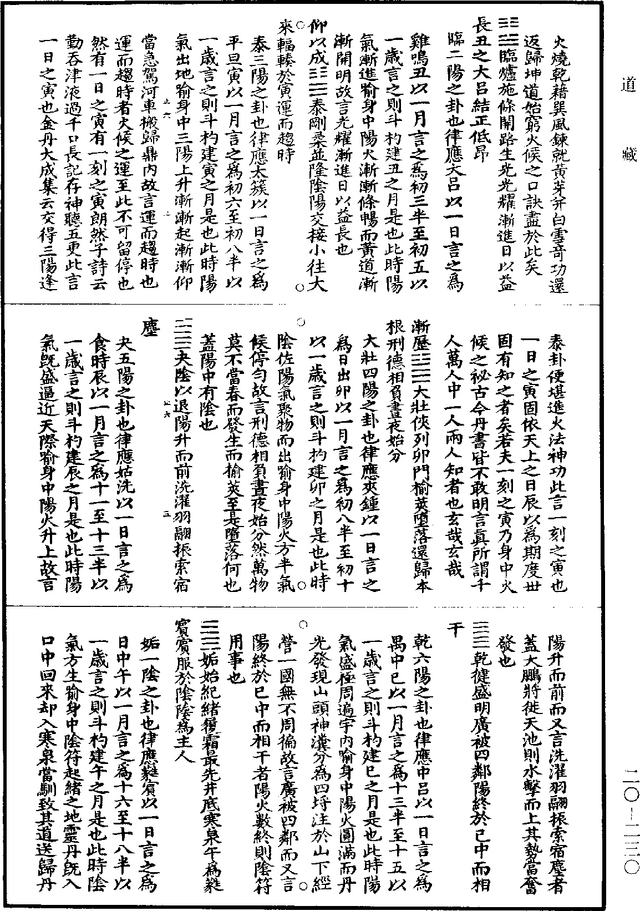 道藏
火燒乾藉巽風鍊就黃芽并白雪音功還
返歸坤道始窮火候之口訣盡於此矣
☷☱臨爐施條開路生光光耀漸進日以益
長丑之大呂結正低昂
臨二陽之卦也律應大呂以一日言之為
雞鳴丑以一月言之為初三半至初五以
一歲言之則斗杓建丑之月是也此時陽
氣漸進喻身中陽火漸漸條暢而黃道漸
漸開明故言光耀漸進日以益長也
仰以成☷☰泰剛柔並隆陰陽交接小往大
來輻輳於寅運而趨時
泰三陽之卦也律應太簇以一日言之為
平旦寅以一月言之為初六至初八半以
一歲言之則斗杓建寅之月是也此時陽
氣出地喻身中三陽上升漸漸起漸漸仰
當急駕河車搬歸鼎內故言運而趨時也
運而趨時者火候之運至此不可留停也
然有一日之寅有一刻之寅朗然子詩云
勤吞津液過千口長記存神聽五更此言
一日之寅也金丹大成集云交得三陽逢
泰卦便堪進火法神功此言一刻之寅也
一日之寅固依天上之日辰以為期度世
固有知之者矣若夫一刻之寅乃身中火
候之祕古今丹書皆不敢明言真所謂千
人萬人中一人兩人知者也玄哉玄哉
漸歷☳☰大壯俠列卯門榆莢墮落還歸本
根刑德相負晝夜始分
大壯四陽之卦也律應夾鍾以一日言之
為日出卯以一月言之為初八半至初十
以一歲言之則斗杓建卯之月是也此時
陰佐陽氣聚物而出喻身中陽火方半氣
候停勻故言刑德相負晝夜始分然萬物
莫不當春而發生而榆莢至是墮落何也
蓋陽中有陰也
☱☰夬陰以退陽升而前洗濯羽翮振索宿
塵
夬五陽之卦也律應姑洗以一日言之為
食時辰以一月言之為十一至十三半以
一歲言之則斗杓建辰之月是也此時陽
氣既盛逼近天際喻身中陽火升上故言
陽升而前而又言洗濯羽翮振索宿塵者
蓋大鵬將徙天池則水擊而上其勢當奮
發也
☰☰乾健盛明廣被四鄰陽終於巳中而相
干
乾六陽之卦也律應中呂以一日言之為
禺中巳以一月言之為十三半至十五以
一歲言之則斗杓建巳之月是也此時陽
氣盛極周遍宇內喻身中陽火圓滿而丹
光發現山頭神瀵分為四埒注於山下經
營一國無不周徧故言廣被四鄰而又言
陽終於巳中而相干者陽火數終則陰符
用事也
☰☴姤始紀緒履霜最先井底寒泉午為蕤
賓賓服於陰陰為主人
姤一陰之卦也律應蕤賓以一日言之為
日中午以一月言之為十六至十八半以
一歲言之則斗杓建午之月是也此時陰
氣方生喻身中陰符起緒之地靈丹既入
口中回來却入寒泉當馴致其道送歸丹
二〇-二三〇